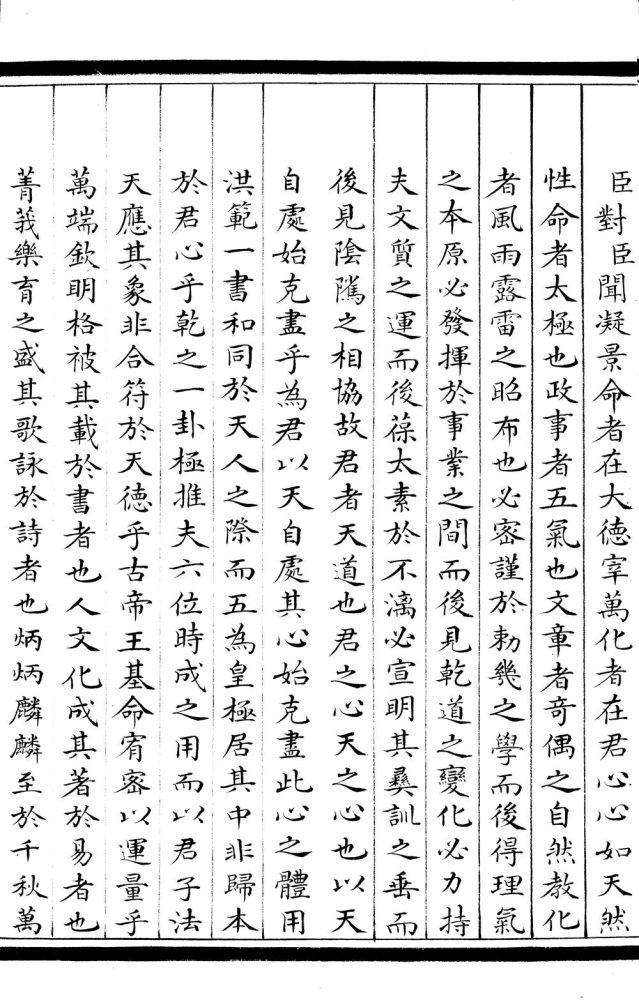 臣對臣聞凝景命者在大德宰萬化者在君心心如天然
性命者太極也政事者五氣也文章者奇偶之自然教化
者風雨露雷之昭布也必宻謹於勅幾之學而後得理氣
之本原必發揮於事業之間而後見乾道之變化必力持
夫文質之運而後葆太素於不漓必宣明其彝訓之垂而
後見陰隲之相協故君者天道也君之心天之心也以天
自處始克盡乎為君以天自處其心始克盡此心之體用
洪範一書和同於天人之際而五為皇極居其中非歸本
於君心乎乾之一卦極推夫六位時成之用而以君子法
天應其象非合符於天德乎古帝王基命宥宻以運量乎
萬端欽明格被其載於書者也人文化成其著於易者也
菁莪樂育之盛其歌詠於詩者也炳炳麟麟至於千秋萬